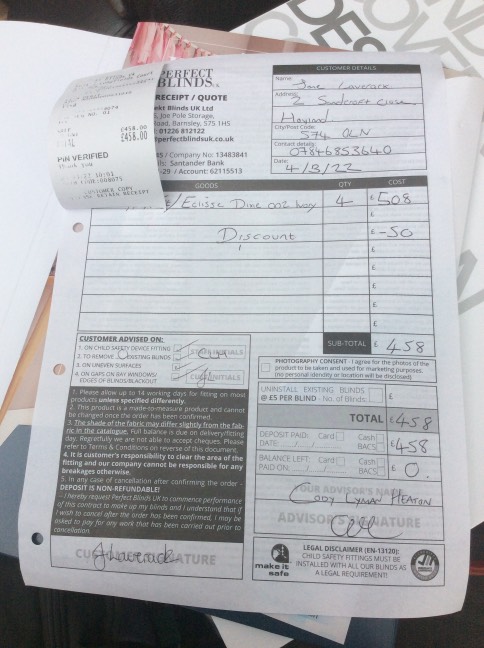 PERFECT
BLINDS
RECEIPT / QUOTE
ekt Blinds UK Ltd
Joe Pole Storage,
oad, Barnsley, S75 1HS
01226 812122
tperfectblindsuk.co.uk
/ Company No: 13483841
Santander Bank
-29 / Account: 62115513
£458.00
£458.00
PIN VERIFIED
CUSTOMER COPY
PLEASE RETAIN RECEIPT
CUSTOMER DETAILS
Name: Jane Laverack
Address: 2 Sandcroft Close
Hoyland
City/Post Code: S74 0LN
Contact details: 07846853640
Date: 4/3/22
GOODS QTY COST
/Eclisse Dime 002 Ivory 4 £508
£
Discount £-50
£
£
£
£
£
SUB-TOTAL £458
CUSTOMER ADVISED ON:
1. ON CHILD SAFETY DEVICE FITTING
2. TO REMOVE EXISTING BLINDS
3. ON UNEVEN SURFACES
4. ON GAPS ON BAY WINDOWS/
EDGES OF BLINDS/BLACKOUT
INITIALS
INITIALS
PHOTOGRAPHY CONSENT - I agree for the photos of the
product to be taken and used for marketing purposes.
(no personal identity or location will be disclosed)
UNINSTALL EXISTING BLINDS
@ £5 PER BLIND - No. of Blinds £
TOTAL £458
DEPOSIT PAID: Card Cash
DATE: ..../..../.... BACS £458
BALANCE LEFT: Card Cash
PAID ON: ..../..../.... BACS £0.
YOUR ADVISOR'S NAME
Cody Lyman Heaton
ADVISOR'S SIGNATURE
1. Please allow up to 14 working days for fitting on most
products unless specified differently.
2. This product is a made-to-measure product and cannot
be changed once the order has been confirmed.
3. The shade of the fabric may differ slightly from the fab-
ric in the catalogue. Full balance is due on delivery/fitting
day. Regretfully we are not able to accept cheques. Please
refer to Terms & Conditions on reverse of this document.
4. It is customer's responsibility to clear the area of the
fitting and our company cannot be responsible for any
breakages otherwise.
5. In any case of cancellation after confirming the order -
DEPOSIT IS NON-REFUNDABLE!
- I hereby request Perfect Blinds UK to commence performance
of this contract to make up my blinds and I understand that if
I wish to cancel after the order has been confirmed, I may be
asked to pay for any work that has been carried out prior to
cancellation.
CUSTOMER SIGNATURE
JLaverack
make it
safe
LEGAL DISCLAIMER (EN-13120):
CHILD SAFETY FITTINGS MUST BE
INSTALLED WITH ALL OUR BLINDS AS
A LEGAL REQUIREMENT!